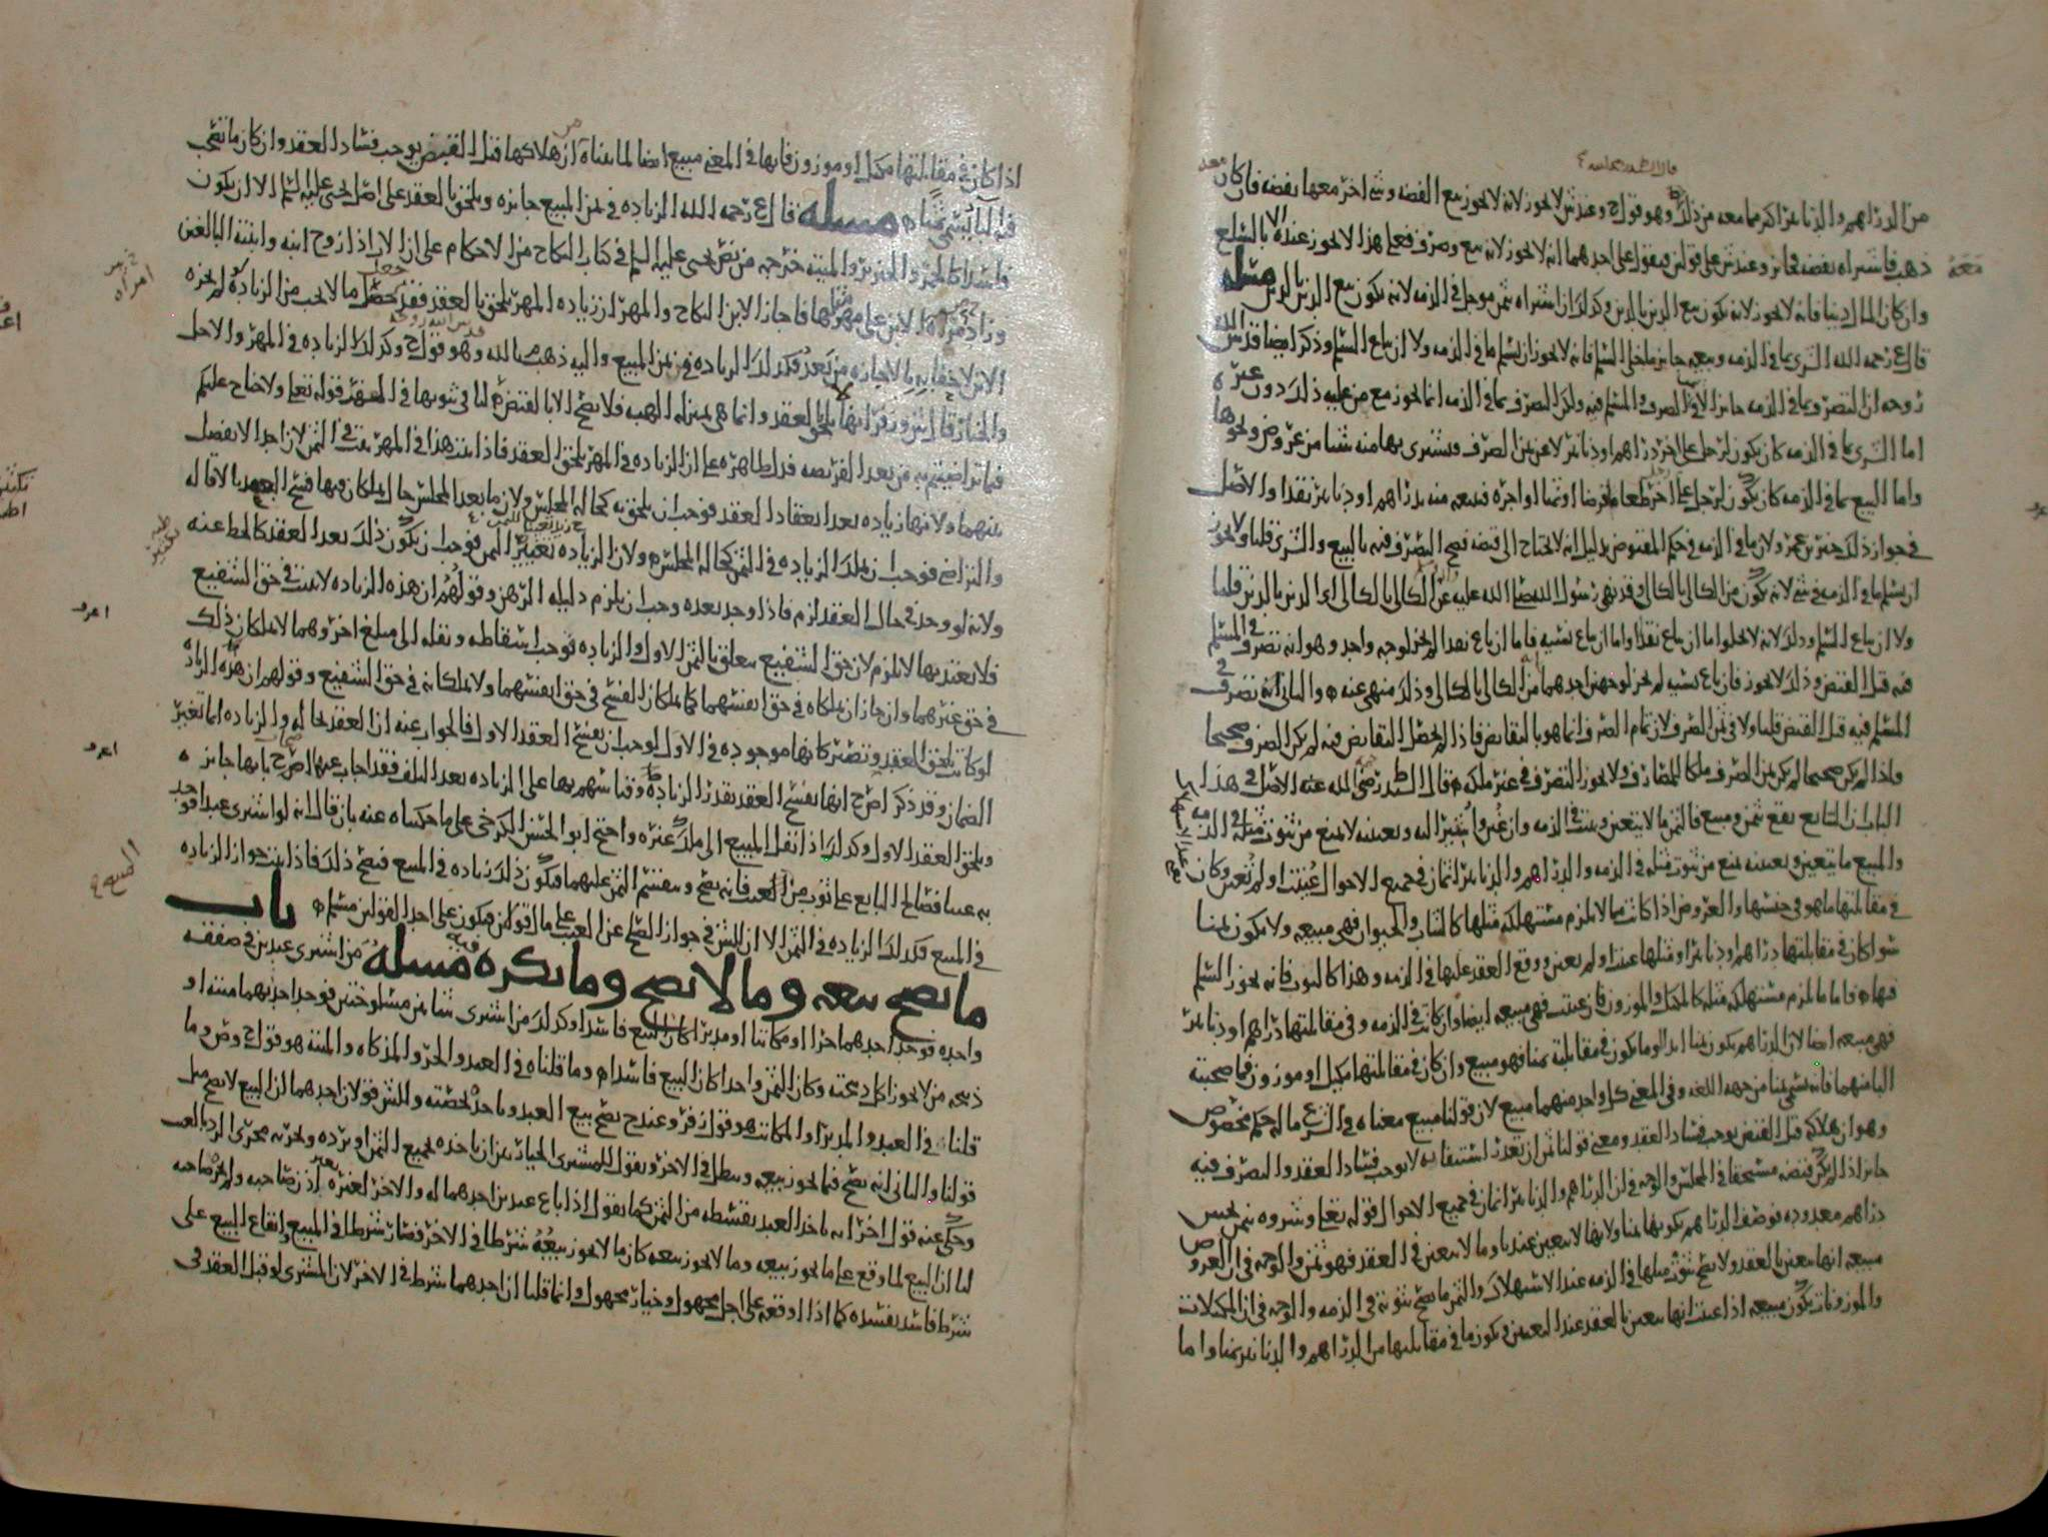 من الدراهم والدنانير اكثر مما معه من ذلك وهو قول ح وعند ش لا يجوز لانه لا يجوز بيع الفضه وشي اخر معها بفضه فان كان معه
ذهب فاشتراه بفضه فجائز وعند ش على قولين فيقول على احدهما انه لا يجوز لانه بيع وصرف فعلى هذا لا يجوز عنده الا بالسلع
وان كان المال دينا فانه لا يجوز لانه يكون بيع الدين بالدين وكذلك ان اشتراه بثمن موجل في الذمه لانه يكون بيع الدين بالدين مسله
قال رحمه الله الشرى بما في الذمه وبيعه جائز ما خلى السلم فانه لا يجوز ان يسلم ما في الذمه ولا ان يباع السلم وذكر ايضا قدس الله
روحه ان التصرف بما في الذمه جائز الا في الصرف والسلم فيه ولكن الصرف بما في الذمه انما يجوز مع من عليه ذلك دون غيره
اما الشرى بما في الذمه كان يكون لرجل على اخر دراهم او دنانير لا عن ثمن الصرف فيشترى بها منه شيا من عروض ونحوها
واما البيع بما في الذمه كان يكون لرجل على اخر طعاما قرضا او ثمنا او اجره فيبيعه منه بدراهم او دنانير نقدا والاصل
في جواز ذلك خبر بن عمر ولان ما في الذمه في حكم المقبوض بدليل انه لا يحتاج الى قبضه فصح التصرف فيه بالبيع والشرى قلنا ولا يجوز
ان يسلم ما في الذمه في شي لانه يكون من الكالي بالكالي وقد نهى رسول الله صلى الله عليه عن الكالي بالكالي اي الدين بالدين قلنا
ولا ان يباع السلم وذلك لانه لا يخلوا اما ان يباع نقدا واما ان يباع نسيه فاما ان باع نقدا لم يجز لوجه واحد وهو انه تصرف في المسلم
فيه قبل القبض وذلك لا يجوز فان باع نسيه لم يجز لوجهين احدهما من الكالي بالكالي وذلك منهي عنه والثاني انه تصرف في
المسلم فيه قبل القبض قلنا ولا في ثمن الصرف لان تمام الصرف انما هو بالتقابض فاذا لم يحصل التقابض فيه لم يكن الصرف صحيحا
واذا لم يكن صحيحا لم يكن ثمن الصرف ملكا للمصارف ولا يجوز التصرف في غير ملكه قال السيد رضي الله عنه الاصل في هذا
الباب ان التبايع يقع بثمن ومبيع فالثمن ما لا يتعين ويثبت في الذمه
والمبيع ما يتعين وتعيينه يمنع من ثبوت مثله في الذمه والدراهم والدنانير اثمان في جميع الاحوال عينت او لم تعين وكان
في مقابلتها ما هو في جنسها والعروض اذا كانت مما لا يلزم مستهلكه مثلها كالثياب والحيوان فهي مبيعه ولا يكون ثمنا
سوا كان في مقابلتها دراهم او دنانير او مثلها عينت او لم تعين ووقع العقد عليها في الذمه وهذا كالثوب فانه يجوز السلم
فيها فاما ما يلزم مستهلكه مثله كالمكيل والموزون فان عينت فهي مبيعه ايضا وان كانت في الذمه وفي مقابلتها دراهم او دنانير
فهي مبيعه ايضا لان الدراهم يكون ثمنا ابدا وما يكون في مقابلته ثمنا فهو مبيع وان كان في مقابلتها مكيل او موزون فما صحبته
البا منهما فانه يسمى ثمنا من جهه اللغه وفي المعنى كل واحد منهما مبيع لان قولنا مبيع معناه في الشرع ما له حكم مخصوص
وهو ان هلاكه قبل القبض يوجب فساد العقد ومعنى قولنا ثمن ان تعذر استيفايه لا يوجب فساد العقد والتصرف فيه
جائز اذا لم يكن قبضه مستحقا في المجلس والوجه في ان الدراهم والدنانير اثمان في جميع الاحوال قوله تعلى وشروه بثمن بخس
دراهم معدوده فوصف الدراهم بكونها ثمنا ولانها لا تتعين عندنا وما لا يتعين في العقد فهو ثمن والوجه في ان العروض
مبيعه انها تتعين بالعقد ولا يصح ثبوت مثلها في الذمه عند الاستهلاك والثمن ما يصح ثبوته في الذمه والوجه في ان المكيلات
والموزونات يكون مبيعه اذا عينت انها تتعين بالعقد عند التعيين ويكون ما في مقابلتها من الدراهم والدنانير ثمنا واما
اذا كان في مقابلتها مكيل او موزون فانها في المعنى مبيع ايضا لما بيناه من ان هلاكها قبل القبض يوجب فساد العقد وان كان ما تصحب
فيه البا يسمى ثمنا مسله قال رحمه الله الزياده في ثمن المبيع جائزه ويلحق بالعقد على اصل يحيى عليه السلم الا ان يكون
فاسدا كالخمر والخنزير والميته خرجه من نص يحيى عليه السلم في كتاب النكاح من الاحكام على ان الاب اذا زوج ابنه وابنته البالغين
وزاد امراه الابن على مهر مثلها فاجاز الابن النكاح والمهر ان زياده المهر يلحق بالعقد
الابن لاختباره بالاجازه من بعد فكذلك الزياده في ثمن المبيع واليه ذهب م بالله وهو قول ح وكذلك الزياده في المهر والاجل
والخيار قال ش وزفر انها لا تلحق العقد وانما هي بمنزله الهبه فلا يصح الا بالقبض لنا في ثبوتها في المهر قوله تعلى ولا جناح عليكم
فيما تراضيتم به من بعد الفريضه فدل ظاهره على ان الزياده في المهر يلحق العقد فاذا ثبت هذا في المهر ثبت في الثمن لان احدا لا يفصل
بينهما ولانها زياده بعد انعقاد العقد فوجب ان يلحق به كحاله المجلس ولان ما بعد المجلس حال يملكان فيها فسخ العقد بالاقاله
والتراضي فوجب ان يملك الزياده في الثمن كحاله المجلس ولان الزياده تغيير الثمن فوجب ان يكون ذلك بعد العقد كالحط عنه
ولانه لو وجد في حال العقد لزم فاذا وجد بعده وجب ان يلزم دليله الرهن وقولهم ان هذه الزياده لا تثبت في حق الشفيع
فلا يعتد بها لا يلزم لان حق الشفيع يتعلق بالثمن الاول والزياده توجب اسقاطه ونقله الى مبلغ اخر وهما لا يملكان ذلك
في حق غيرهما وان جاز ان يملكاه في حق انفسهما كما يملكان الفسخ في حق انفسهما ولا يملكانه في حق الشفيع وقولهم ان هذه الزياده
لو كانت تلحق العقد وتصير كانها موجوده في الاول لوجب ان يفسخ العقد الاول فالجواب عنه ان العقد بحاله والزياده انما تغير
الضمان وقد ذكر اصح انها بفسخ العقد بقدر الزياده
ويلحق العقد الاول وكذلك اذا انتقل المبيع الى ملك غيره واحتج ابو الحسن الكرخي على ما حكيناه عنه بان قال انه لو اشترى عبدا فوجد
به عيبا فصالح البايع على ثوب من العيب فانه يصح وينقسم الثمن عليهما فيكون ذلك زياده في المبيع فيصح ذلك فاذا ثبت جواز الزياده
في المبيع فكذلك الزياده في الثمن الا ان للش في جواز الصلح عن العيب على مال قولين فيكون على احد القولين مسلم باب
ما يصح بيعه وما لا يصح وما يكره فيه مسله من اشترى عبدين في صفقه
واحده فوجد احدهما حرا او مكاتبا او مدبرا كان البيع فاسدا وكذلك من اشترى شاتين مسلوختين فوجد احديهما ميته او
ذبيحه من لا يجوز اكل ذبيحته وكان الثمن واحدا كان البيع فاسدا وما قلناه في العبد والحر والمذكاه والميته هو قول ح وص وما
قلنا في العبد والمدبر او المكاتب هو قول زفر وعند ح يصح بيع العبد وياخذ بحصته وللش قولان احدهما ان البيع لا يصح مثل
قولنا والثاني انه يصح فيما يجوز بيعه ويبطل في الاخر ويقول للمشترى الخيار بين ان ياخذه بجميع الثمن او يرده ويجريه مجرى الرد بالعيب
وحكي عنه قول اخر انه ياخذ العبد بقسطه من الثمن كما يقول اذا باع عبدين احدهما له والاخر لغيره بغير اذن صاحبه ولم يجز صاحبه
لنا ان البيع لما وقع على ما يجوز بيعه وما لا يجوز بيعه كان ما لا يجوز بيعه شرطا في الاخر فصار شرطا في المبيع وايقاع البيع على
شرط فاسد يفسده كما اذا اوقعه على اجل مجهول وخيار مجهول وانما قلنا ان احدهما شرط في الاخر لان المشترى لو قبل العقد في